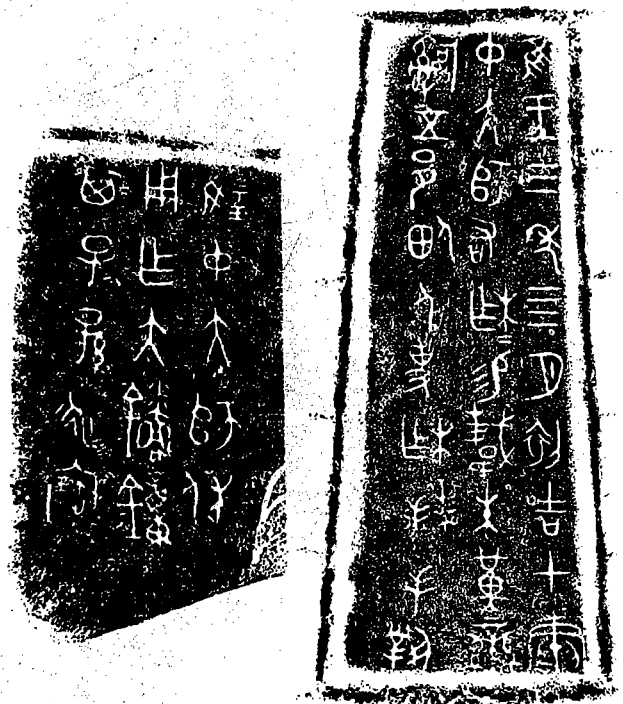 隹王三年四月初吉甲寅
中大師右柞=易載朱黃䜌
𤔲五邑佃人事柞拜手對
揚中大師休
用乍大鐘
其子=孫=永寶